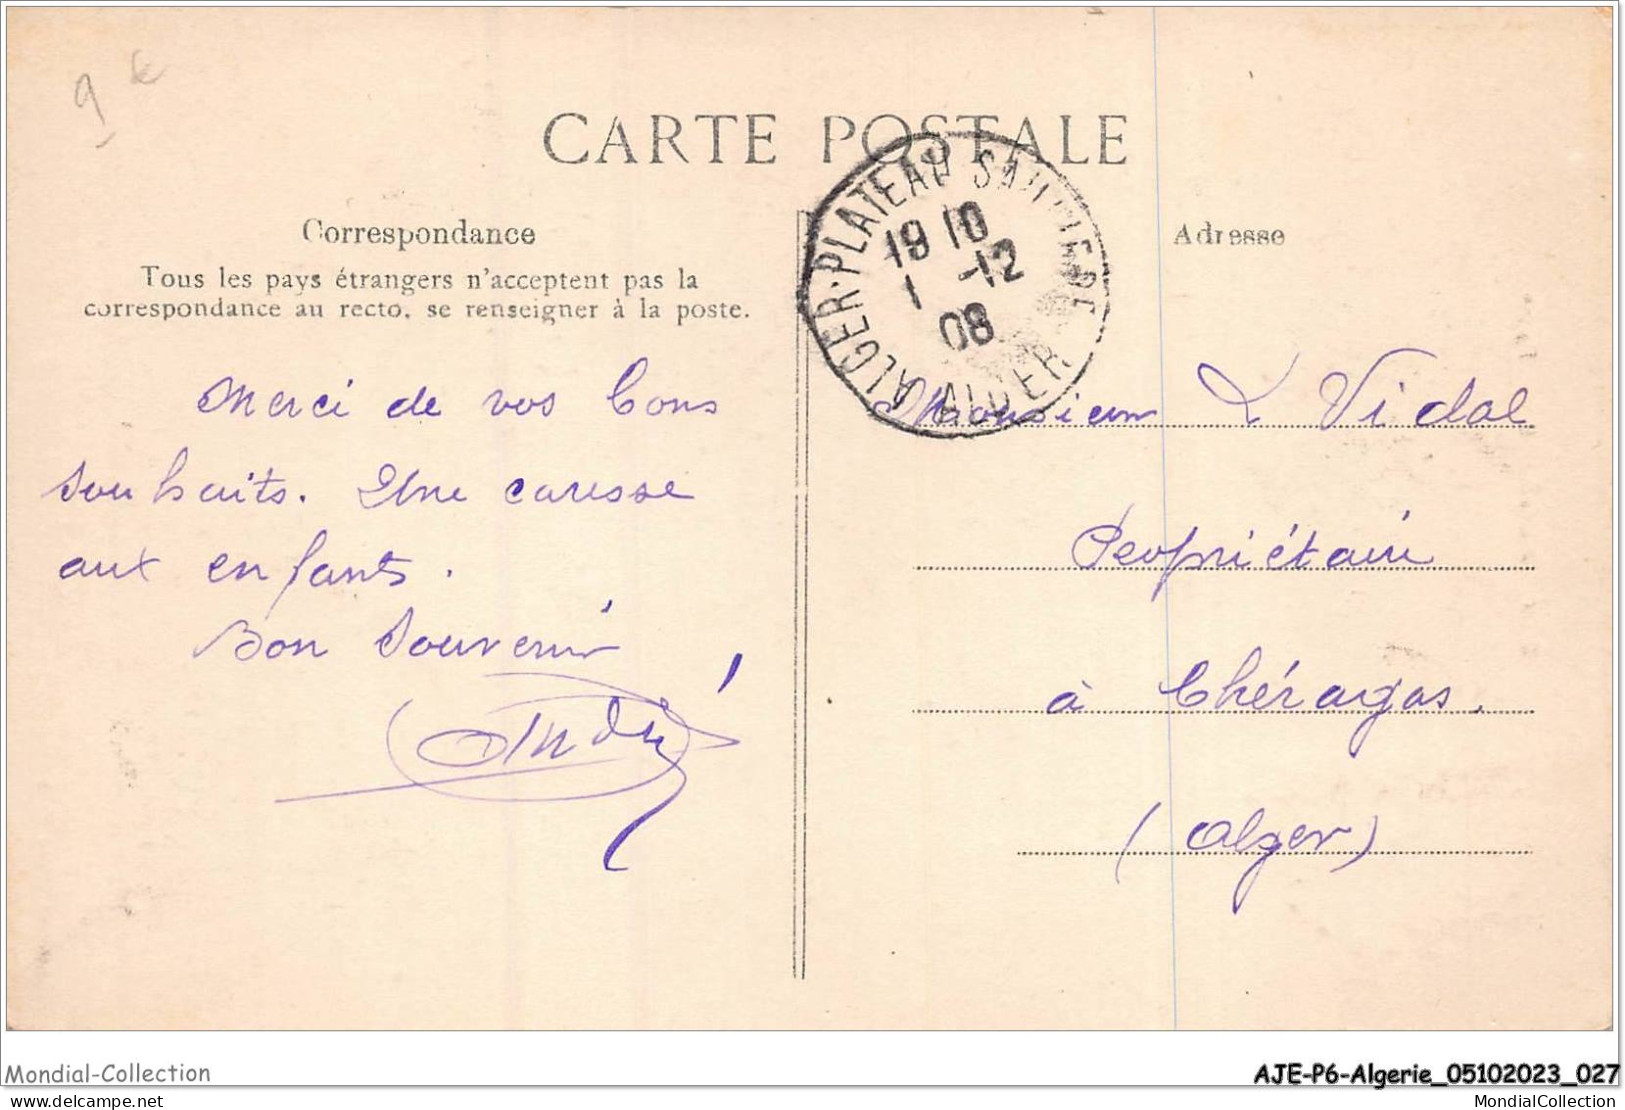 9 €
CARTE POSTALE
Correspondance
Tous les pays étrangers n'acceptent pas la
correspondance au recto, se renseigner à la poste.
Merci de vos bons
souhaits. Une caresse
aux enfants.
Bon Souvenir
André
ALGER-PLATEAU SAULIERE
18 10
1 -12
08
ALGER
Adresse
Monsieur L Vidal
Propriétaire
à Chéragas.
(Alger)
Mondial-Collection
AJE-P6-Algerie_05102023_027
delcampe.net
MondialCollection